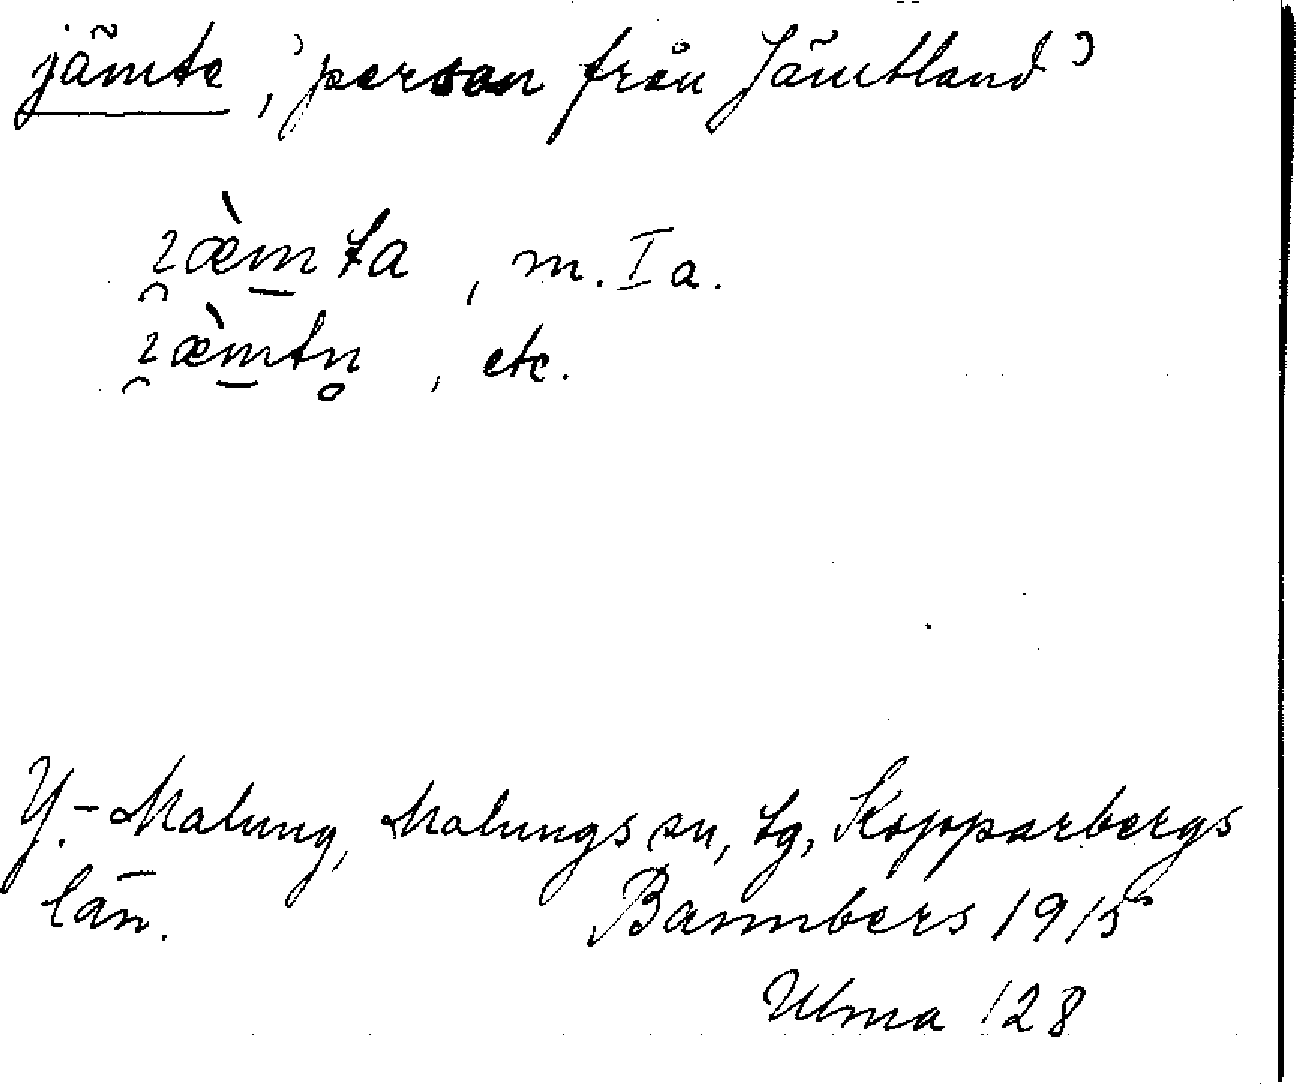 jämte, 'person från Jämtland'
, m. Ia.
, etc.
Y.-Malung, Malungs sn, tg, Kopparbergs
län.
Bannbers 1915
Ulma 128